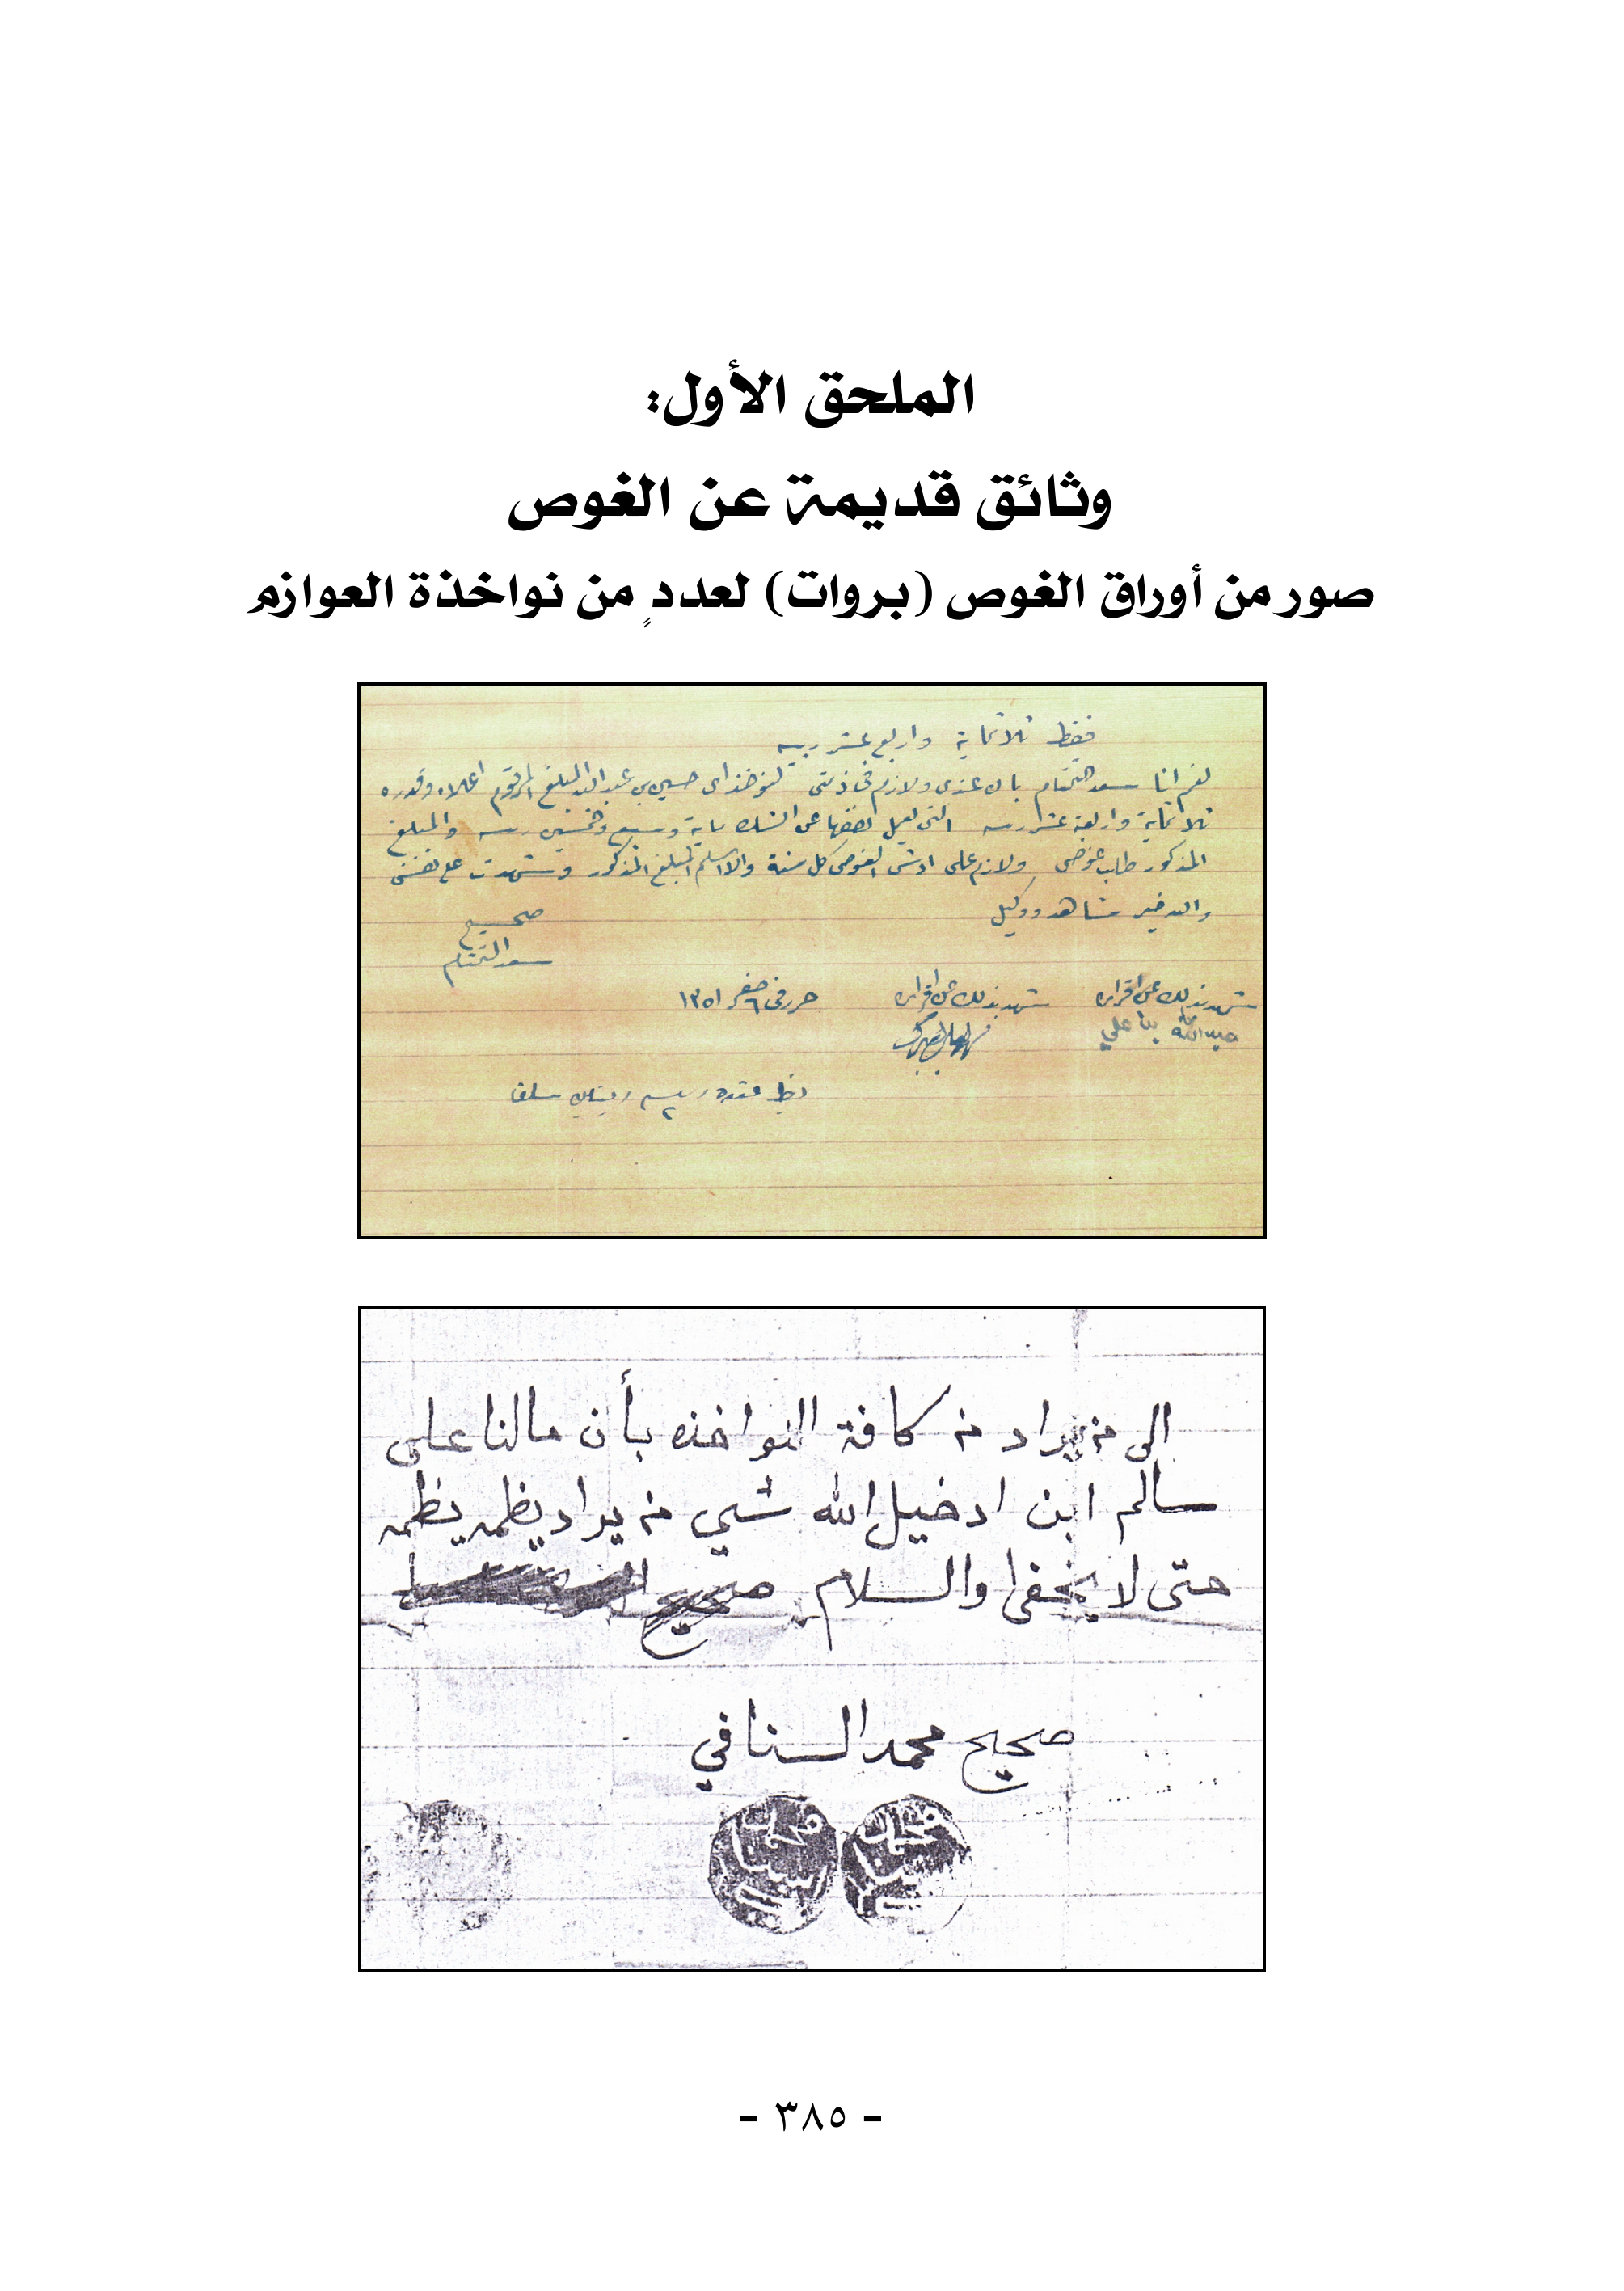 الملحق الأول:
وثائق قديمة عن الغوص
صور من أوراق الغوص (بروات) لعددٍ من نواخذة العوازم
فقط ثلاثماية واربع عشر ربيه
نعم انا سعد بان عندي ولازم في ذمتي لنوخذاي حسين بن عبد الله المبلغ المرقوم اعلاه وقدره
ثلاثماية واربعة عشر ربيه التي نصفها عن الشك ماية وسبع وخمسين ربيه والمبلغ
المذكور طلب غوص ولازم على الغوص كل سنة والا اسلم المبلغ المذكور وشهدت على نفسي
والله خير شاهد ووكيل
صحيح
سعد
شهد بذلك عن اقراره
عبدالله بن علي
شهد بذلك عن اقراره
حرر في ٦ صفر ١٣٥١
سلف
الى من يراد من كافة النواخذه بأن مالنا على
سالم ابن ادخيل الله شي من يراد يظمه يظمه
حتى لا يخفا والسلام صحيح
صحيح محمد السنافي
محمد السنافي
- ٣٨٥ -